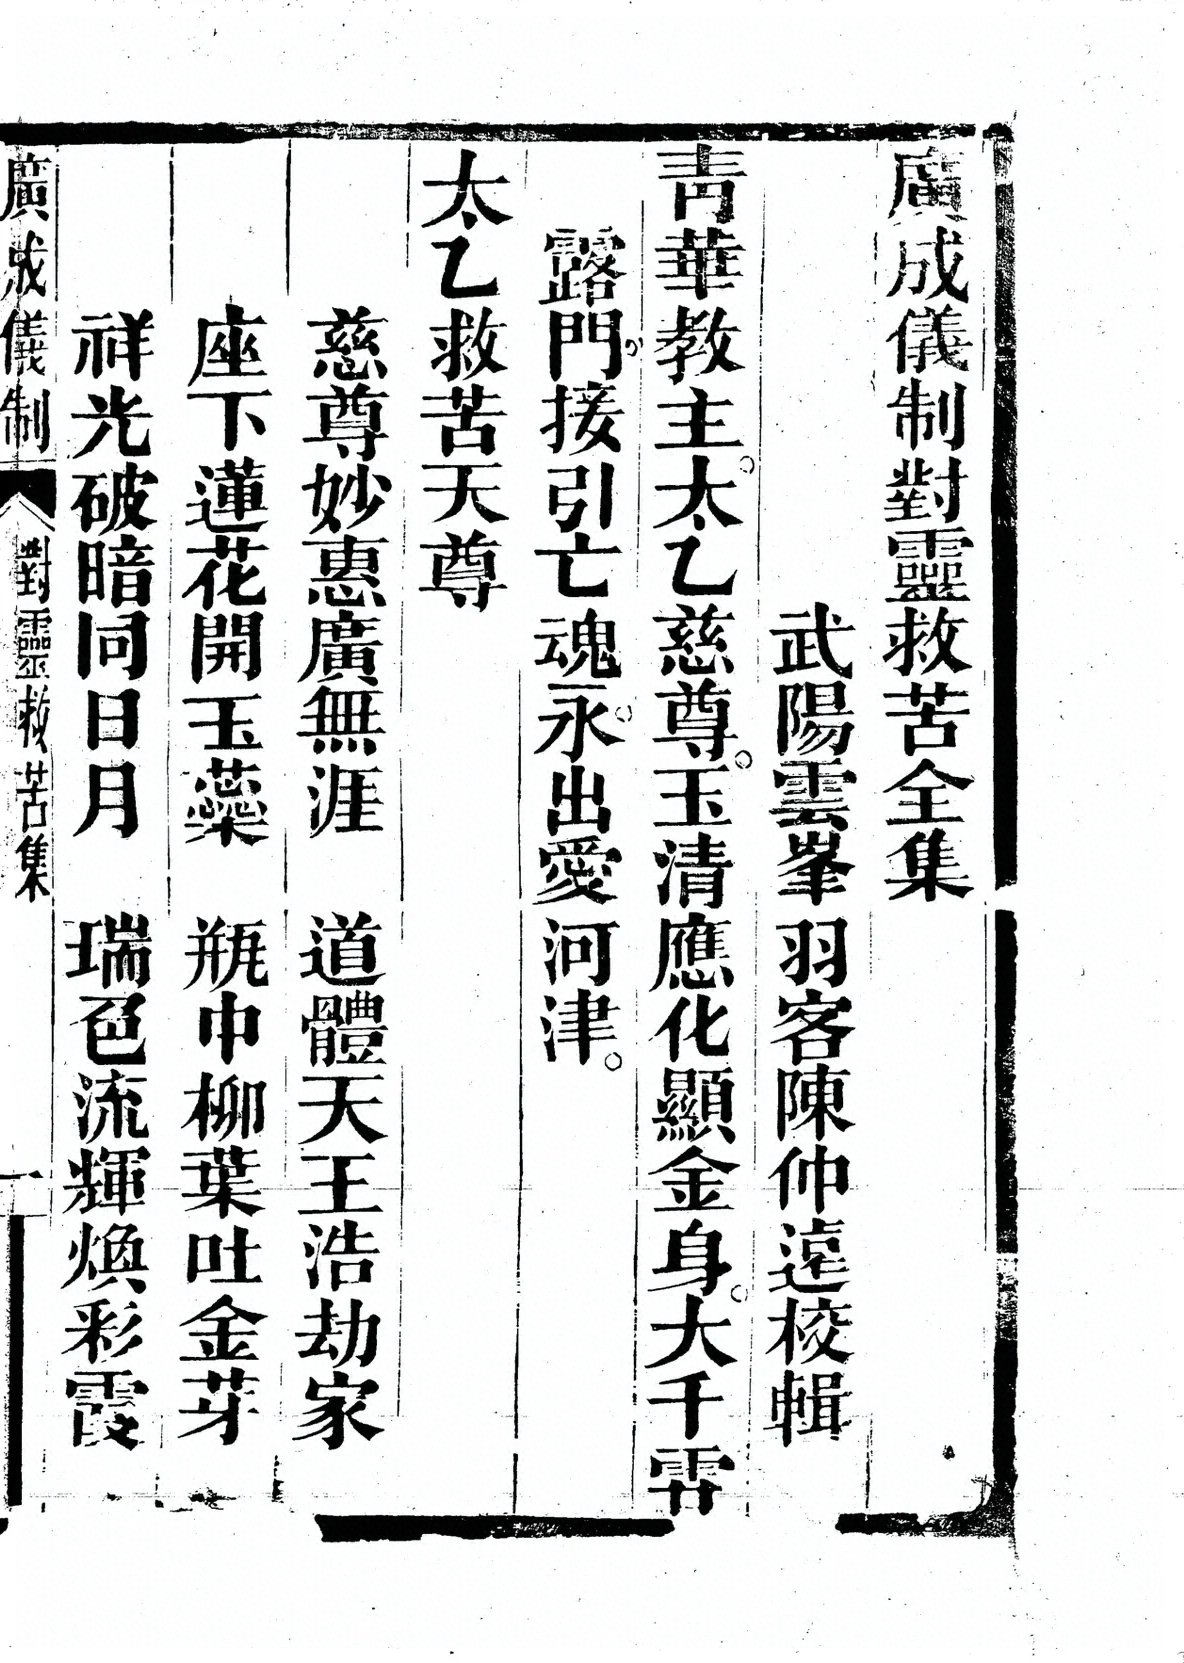 廣成儀制對靈救苦全集
武陽雲峯羽客陳仲遠校輯
青華教主。太乙慈尊。玉清應化顯金身。大千雲
露門。接引亡魂。永出愛河津。
太乙救苦天尊
慈尊妙惠廣無涯　道體天王浩劫家
座下蓮花開玉蘂　瓶中柳葉吐金芽
祥光破暗同日月　瑞色流輝煥彩霞
廣成儀制　對靈救苦集　一